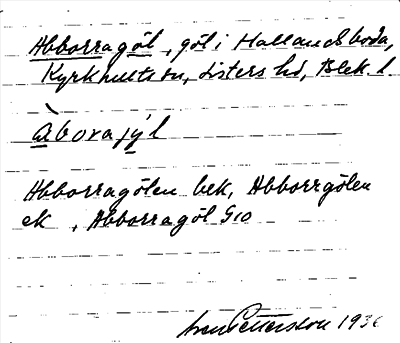 Abborragöl, göl i Hallandsboda,
Kyrkhults sn, Listers hd, Blek. l
Àboragýl
Abborragölen bek, Abborrgölen
ek, Abborragöl G10
Pettersson 1936